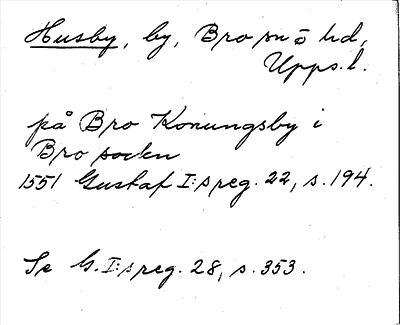 Husby, by, Bro sn o hd,
Upps. l.
på Bro Konungsby i
Bro socken
1551 Gustaf I:s reg. 22, s. 194.
Se G. I:s reg. 28, s. 353.